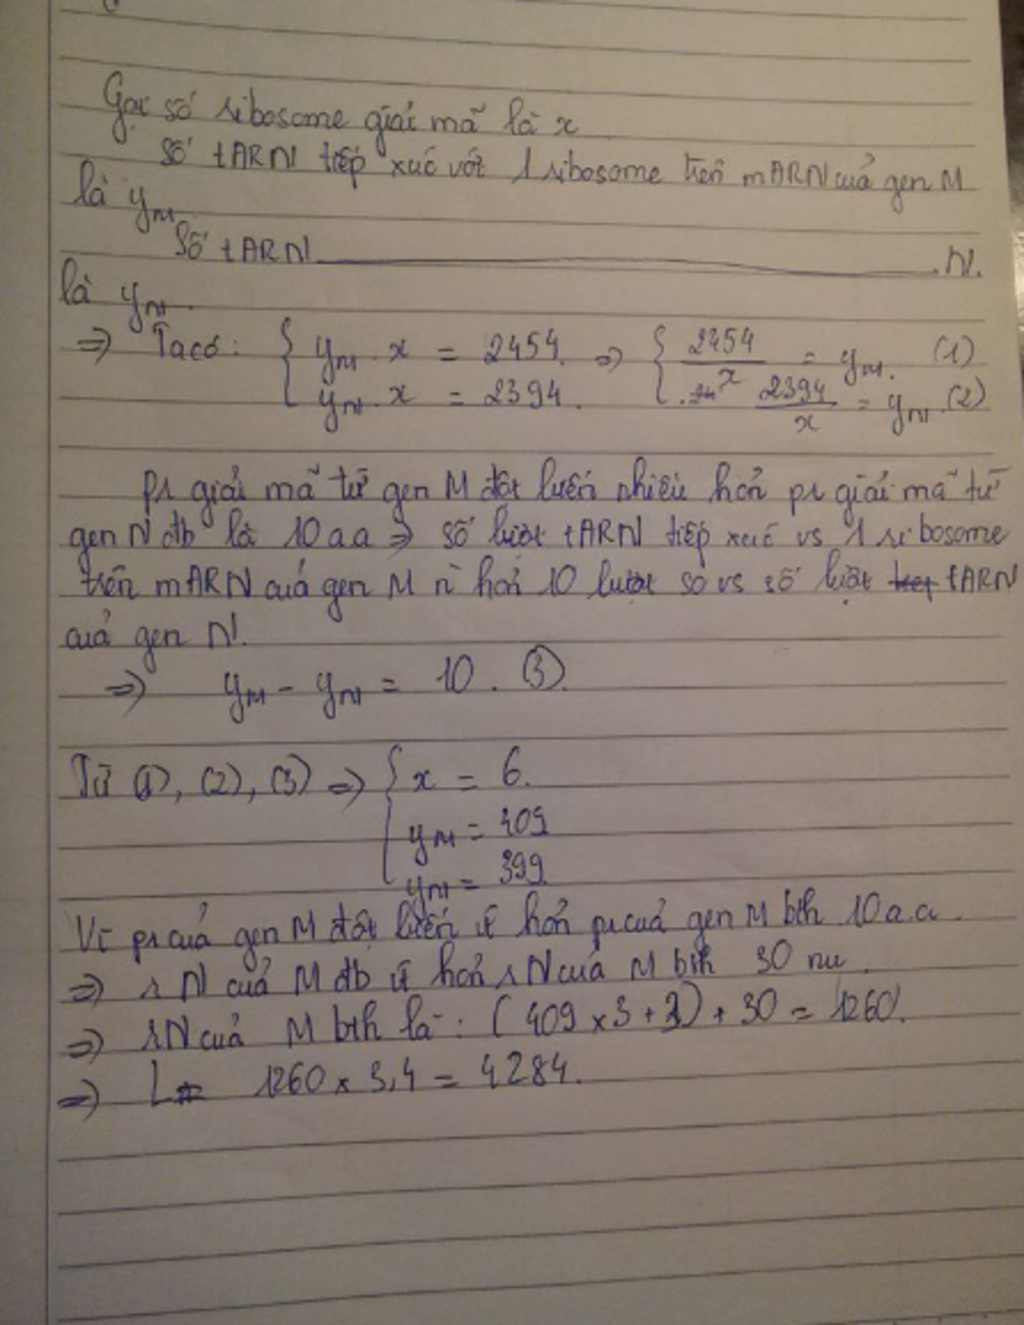 Gọi số ribosome giải mã là x
số tARN tiếp xúc với 1 ribosome trên mARN của gen M
là yM
Số tARN ________________ N.
là yN.
=> Ta có: { yM . x = 2454 => { 2454/x = yM. (1)
yN . x = 2394. 2394/x = yN. (2)
Pr giải mã từ gen M đột biến nhiều hơn pr giải mã từ
gen N đb là 10 a a => số lượt tARN tiếp xúc vs 1 ribosome
trên mARN của gen M n` hơn 10 lượt so vs số lượt tARN
của gen N.
=> yM - yN = 10. (3).
Từ (1), (2), (3) => { x = 6.
yM = 409
yN = 399
Vì pr của gen M đột biến ít hơn pr của gen M bth 10 a.a.
=> rN của M đb ít hơn rN của M bth 30 nu.
=> rN của M bth là: (409 x 3 + 3) + 30 = 1260.
=> L = 1260 x 3,4 = 4284.